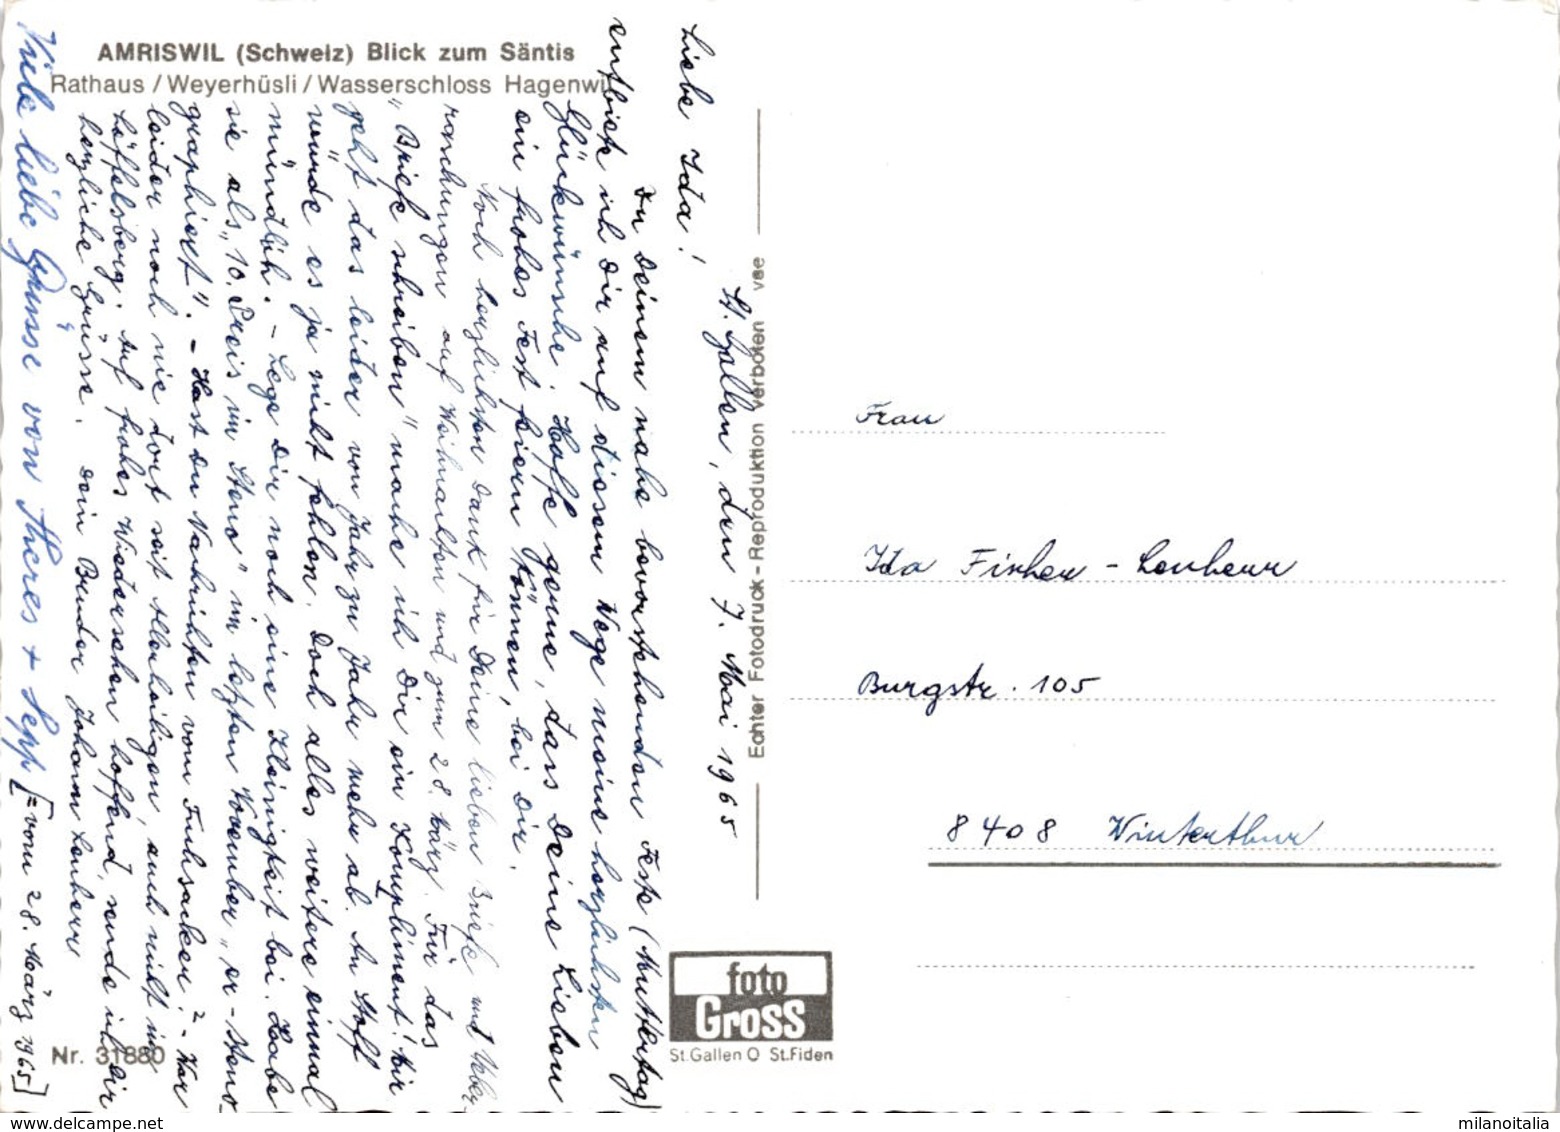 AMRISWIL (Schweiz) Blick zum Säntis
Rathaus / Weyerhüsli / Wasserschloss Hagenwil
St. Gallen, den 7. Mai 1965
Liebe Ida!
Zu Deinem nahe bevorstehenden Feste (Muttertag)
entbiete ich Dir auf diesem Wege meine herzlichsten
Glückwünsche. Hoffe gerne, dass Deine Lieben
ein frohes Fest feiern können, bei Dir.
Noch herzlichsten Dank für Deine lieben Briefe und Ueber-
raschungen auf Weihnachten und zum 28. März. Für das
"Briefe schreiben" mache ich Dir ein Kompliment! Mir
geht das leider von Jahr zu Jahr mehr ab. An Stoff
würde es ja nicht fehlen. Doch alles weitere einmal
mündlich. - Lege Dir noch eine Kleinigkeit bei. Habe
sie als "10. Preis im Steno" im letzten November "er-steno-
graphiert". - Hast Du Nachrichten vom ? - War
leider noch nie dort seit Allerheiligen, auch nicht im
. Auf frohes Wiedersehen hoffend, sende ich Dir
herzliche Grüsse. Dein Bruder Johann Lenherr
Viele liebe Grüsse von Theres + Sepp [= vom 28. März 1965]
Nr. 31880
Echter Fotodruck - Reproduktion verboten vse
foto
Gross
St.Gallen O St.Fiden
Frau
Ida Fischer - Lenherr
Burgstr. 105
8408 Winterthur
milanoitalia
www.delcampe.net